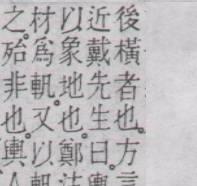 後橫者也。方言
近戴先生曰。輿
以象地也。鄭注
材爲軓。又以
之。殆非也。輿人